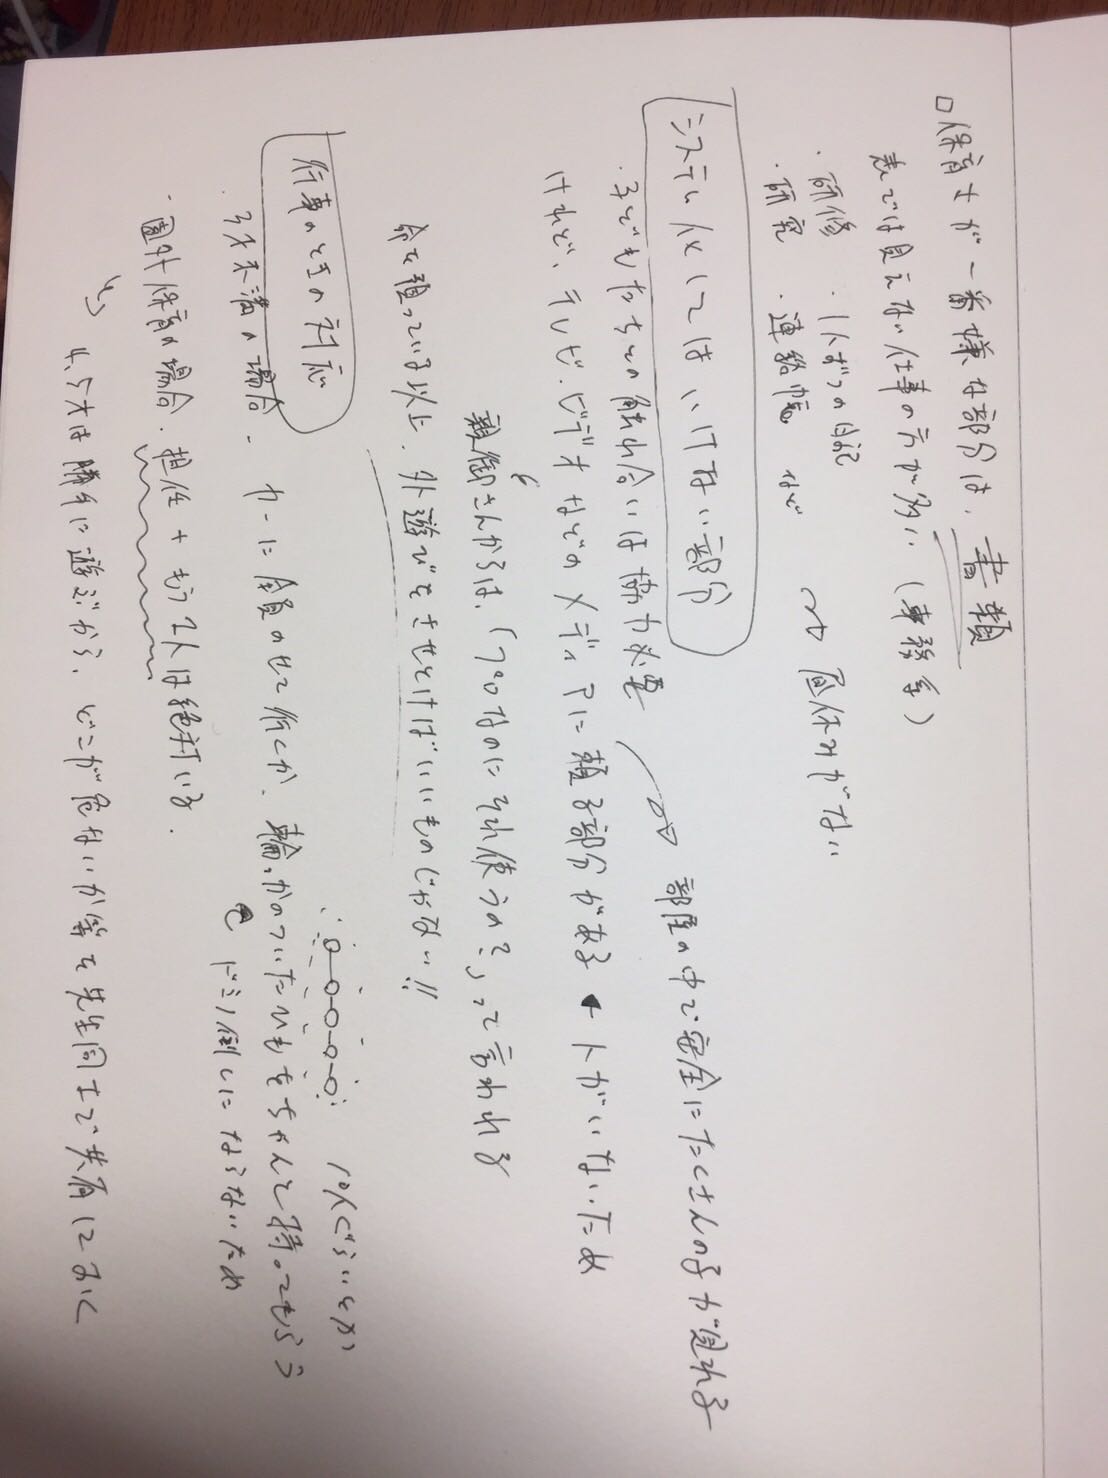 □保育士が一番嫌な部分は、書類
表では見えない仕事の方が多い（事務系）
・研修 ・1人ずつの日記
・研究 ・連絡帳 など → 昼休みがない
システム化してはいけない部分
・子どもたちとの触れ合いは協力必要
部屋の中で安全にたくさんの子が見れる
けれど、テレビ・ビデオなどのメディアに頼る部分がある ← 人がいないため
親御さんからは、「プロなのにそれ使うの？」って言われる
命を預っている以上、外遊びをさせとけばいいものじゃない!!
行事のときの対応
10人ぐらいとか
・3才未満の場合、カーに全員のせて行くか、輪っかのついたひもをちゃんと持ってもらう
ドミノ倒しにならないため
・園外保育の場合、担任＋もう1人は絶対いる。
4、5才は勝手に遊ぶから、どこが危ないか等を先生同士で共有しておく